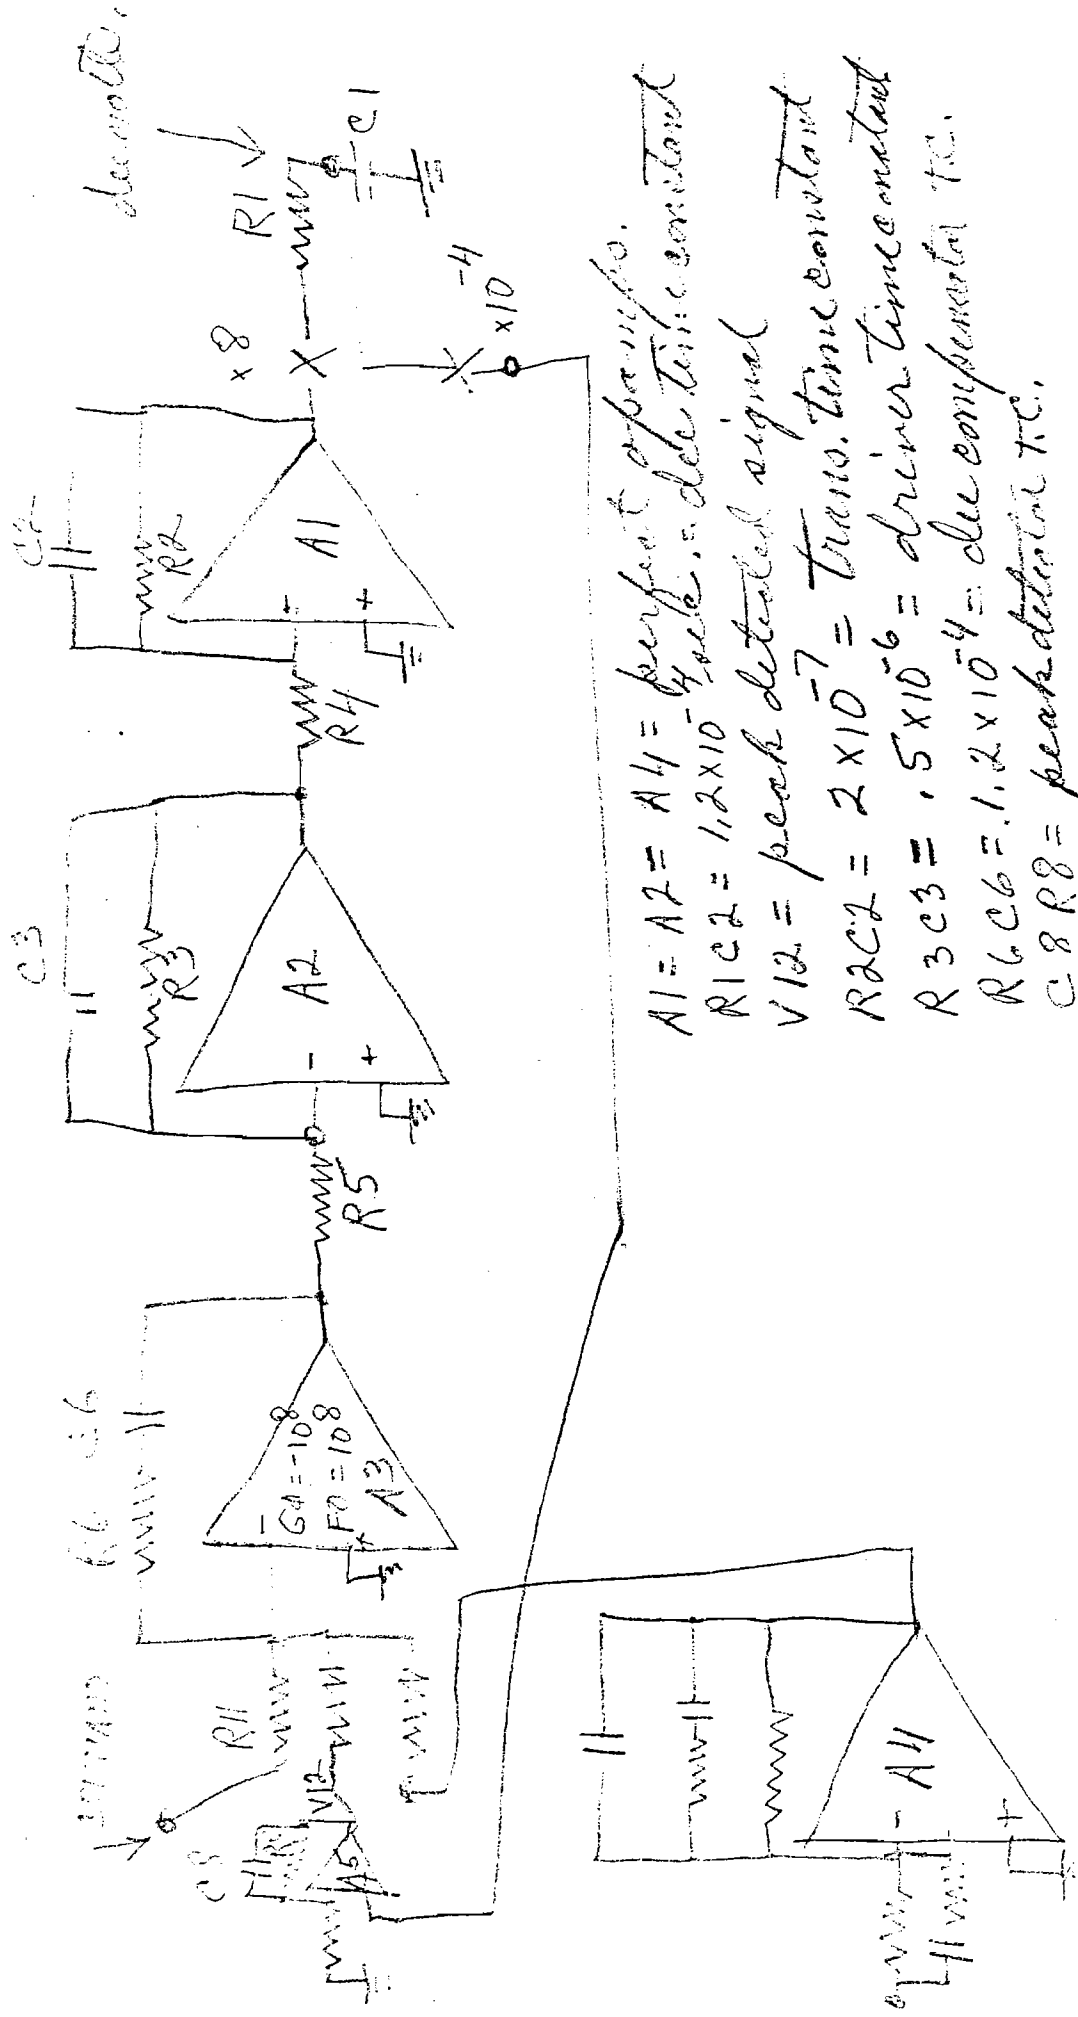 dee volts.
R1
C1
x8
X
x10^-4
C2
R2
A1
-
+
R4
C3
R3
A2
-
+
R5
R6 C6
G0=-10^8
F0=10^8
A3
-
+
R11
C8
R8
V12
A5
A4
-
+
A1= A2= A4= perfect opamps.
R1C2= 1.2x10^-4 secs. = dee time constant
V12= peak detected signal
R2C2= 2x10^-7 = trans. time constant
R3C3= .5x10^-6 = driver time constant
R6C6= 1.2x10^-4 = dee compensator T.C.
C8R8= peak detector T.C.